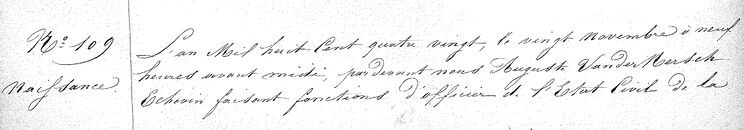 No 109
Naissance.
L'an Mil huit Cent quatre vingt, le vingt Novembre à neuf
heures avant midi, pardevant nous Auguste VanderMersch
Echevin faisant fonctions d'officier de l'Etat Civil de la